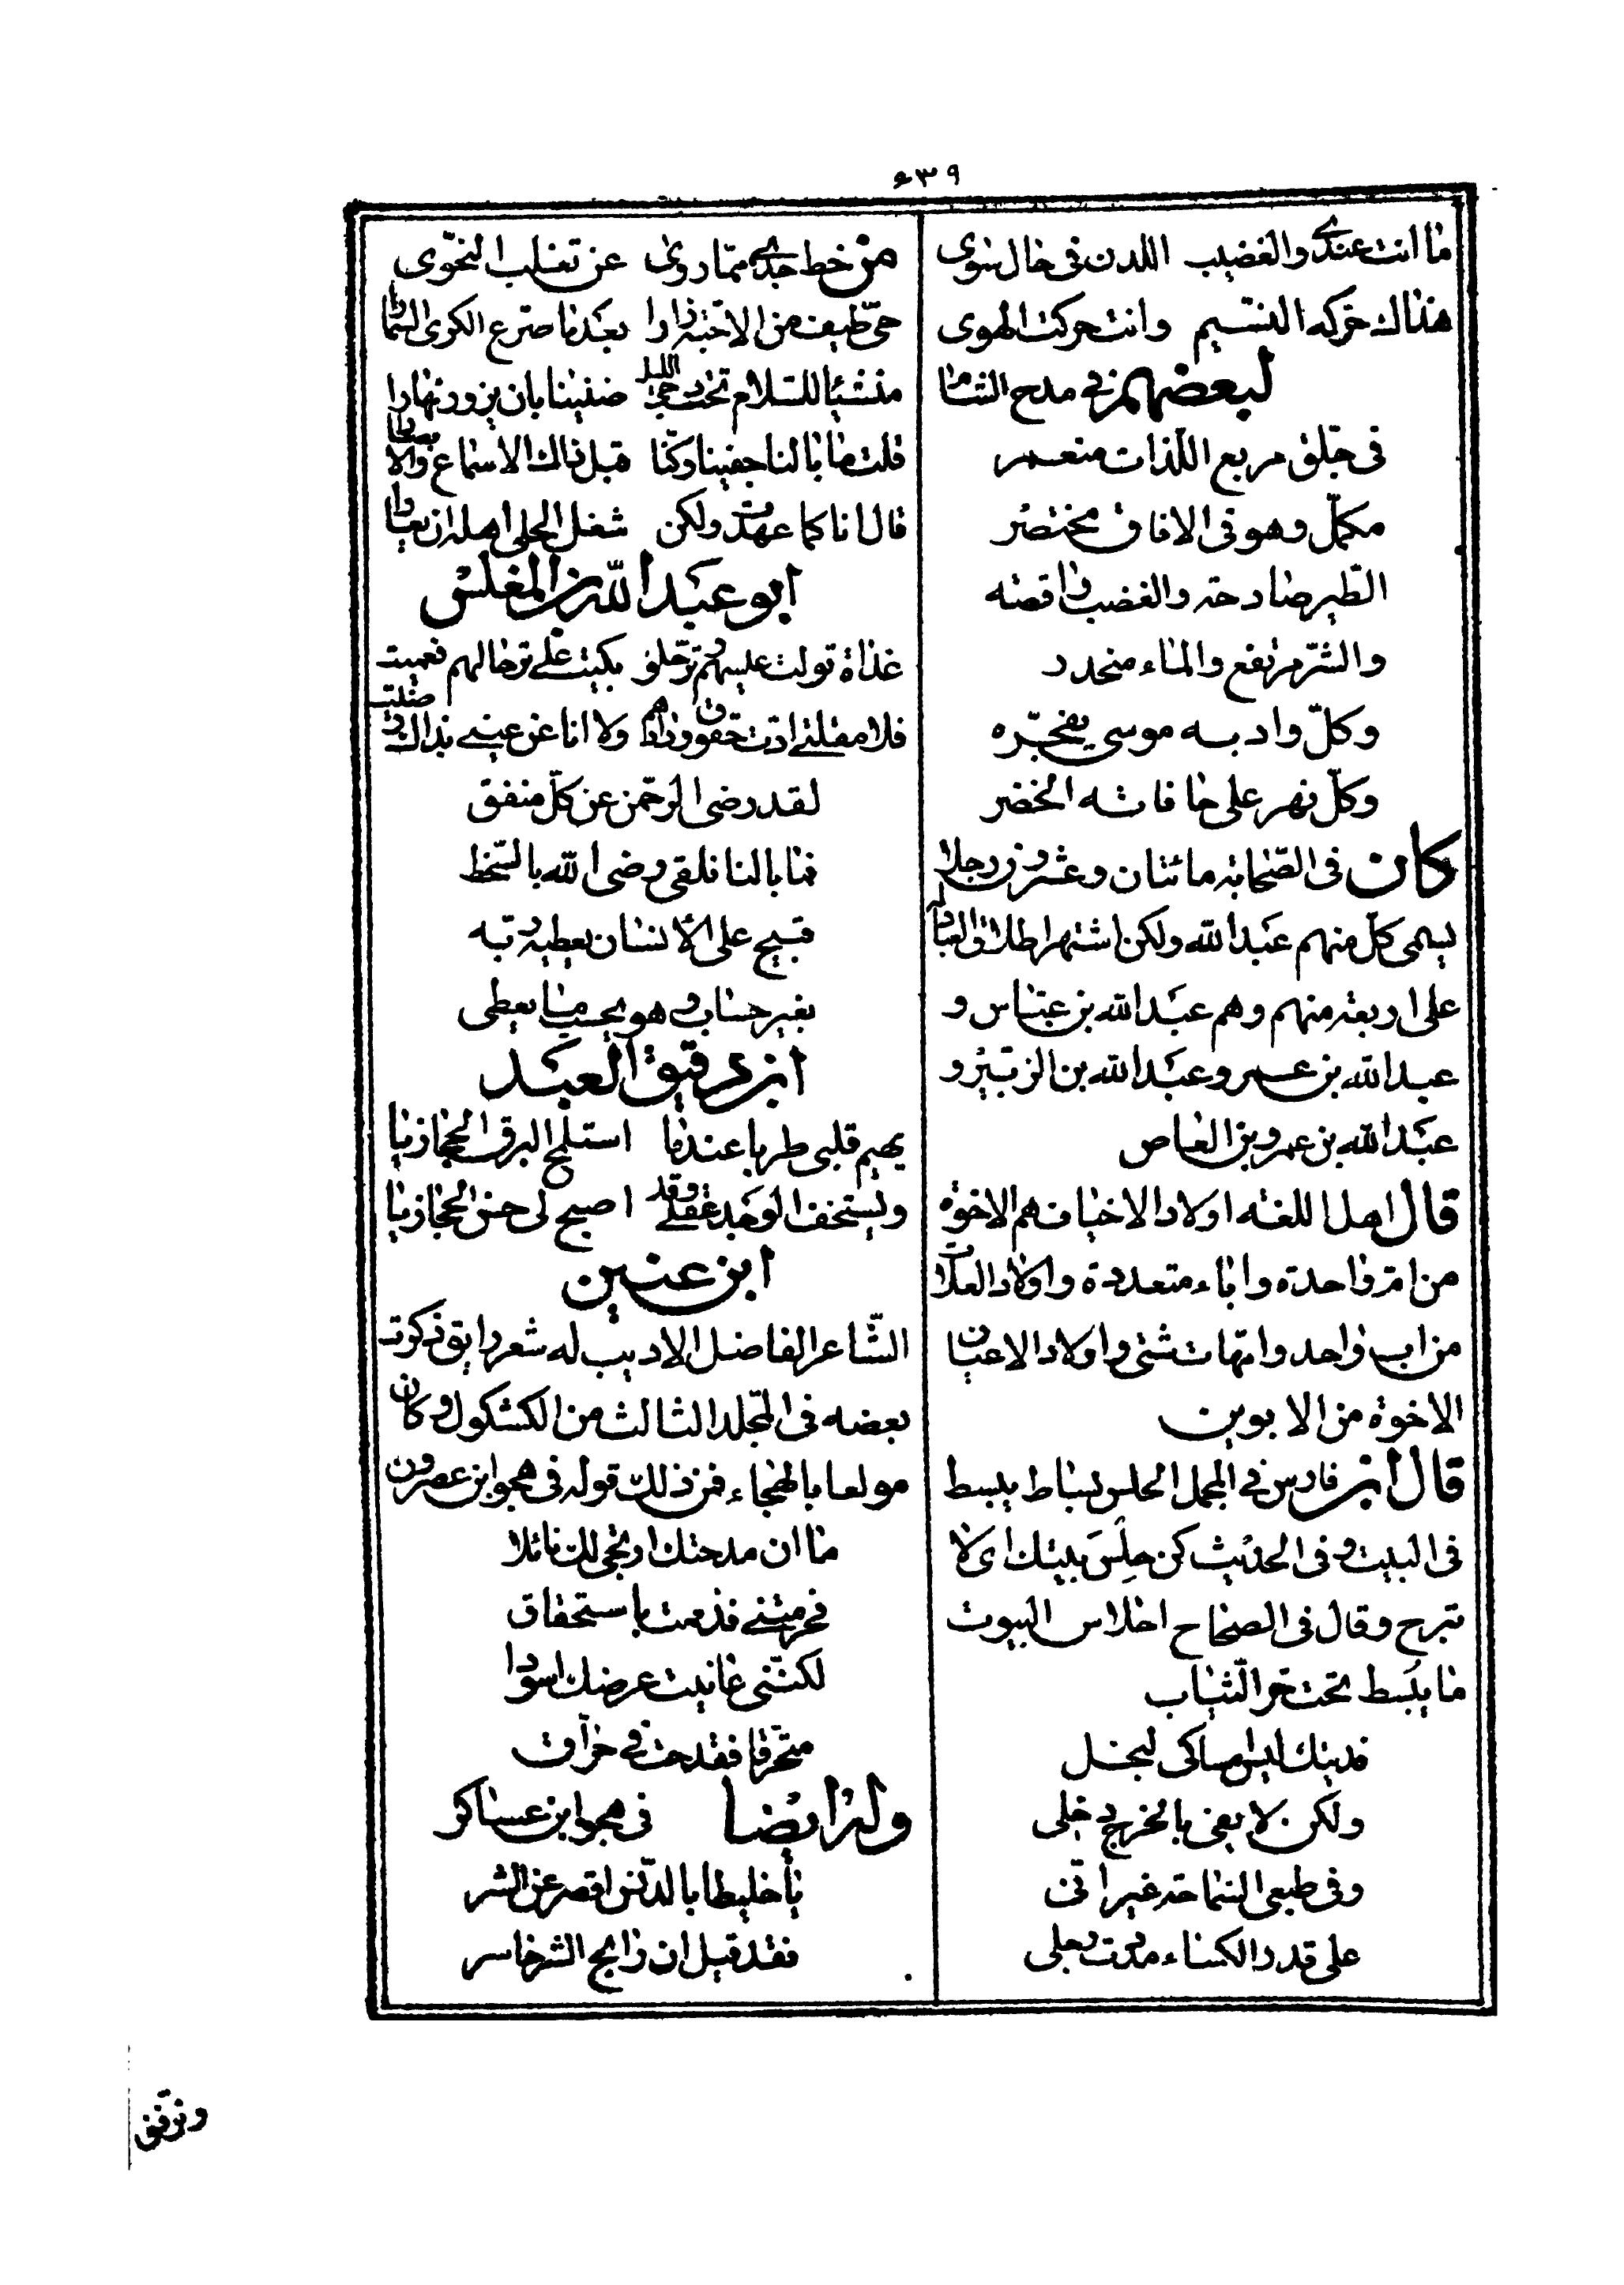 ٤٣٩
ما انت عندي والغضيب اللدن فى حال سوى
هذاك حركه النسيم وانت حركت الهوى
لبعضهم فى مدح الشام
فى جلق مربع اللذات منعمر
مكمل وهو فى الافاق مختصر
الطير صادحة والغضب راقصه
والشر مرتفع والماء منحدر
وكل واد به موسى يفجره
وكل نهر على حافاته الخضر
كان فى الصحابة مائتان وعشرون رجلا
يسمى كل منهم عبد الله ولكن اشتهر اطلاق العبادلة
على اربعة منهم وهم عبد الله بن عباس و
عبد الله بن عمر وعبد الله بن الزبير و
عبد الله بن عمرو بن العاص
قال اهل اللغه اولاد الاخياف هم الاخوة
من ام واحدة واباء متعددة واولاد العلات
من اب واحد وامهات شتى واولاد الاعيان
الاخوة من الابوين
قال ابن فارس فى المجمل الحلس بساط يبسط
فى البيت وفى الحديث كن حلس بيتك اى لا
تبرح وقال فى الصحاح احلاس البيوت
ما يبسط تحت حر الثياب
فديتك ليس امساكى لبخل
ولكن لا يفى بالخرج دخلى
وفى طبعى السماحة غير انى
على قدر الكساء مددت رجلى
من خط جدي مما روى عن تغلب النحوى
حى طيف من الاحبة زارا بعد ما صرع الكرى السمارا
منشئا للسلام تحت دجى الليل ضنينا بان يزور نهارا
قلت ما بالنا جفينا وكنا قبل ذاك الاسماع والابصارا
قال انا كما عهدت ولكن شغل الحلى اهله ان يعارا
ابو عبد الله بن المغلس
غداة تولت عيسهم وترحلوا بكيت على ترحالهم فعميت
فلا مقلتى ادت حقوق ودادهم ولا انا عن عينى بذاك رضيت
لقد رضى الرحمن عن كل منفق
فما بالنا نلقى رضى الله بالسخط
قبيح على الانسان يعطيه ربه
بغير حساب وهو يحسب ما يعطى
ابن دقيق العبد
يهيم قلبى طربا عندما استلمح البرق الحجازيا
ويستخف الوجد عقلى وقد اصبح لى حسن الحجازيا
ابن عنين
الشاعر الفاضل الاديب له شعر رايق ذكرت
بعضه فى المجلد الثالث من الكشكول وكان
مولعا بالهجاء فمن ذلك قوله فى هجو ابن عصرون
ما ان مدحتك ارتجى لك نائلا
فحرمتنى فذممت باستحقاق
لكننى عانيت عرضك اسودا
متحرقا فقدحت فى حراق
وله ايضا فى هجو ابن عساكر
يا خليطا بالدبس اقصر عن الشر
فقد قيل ان رابح الشر خاسر
وترفق